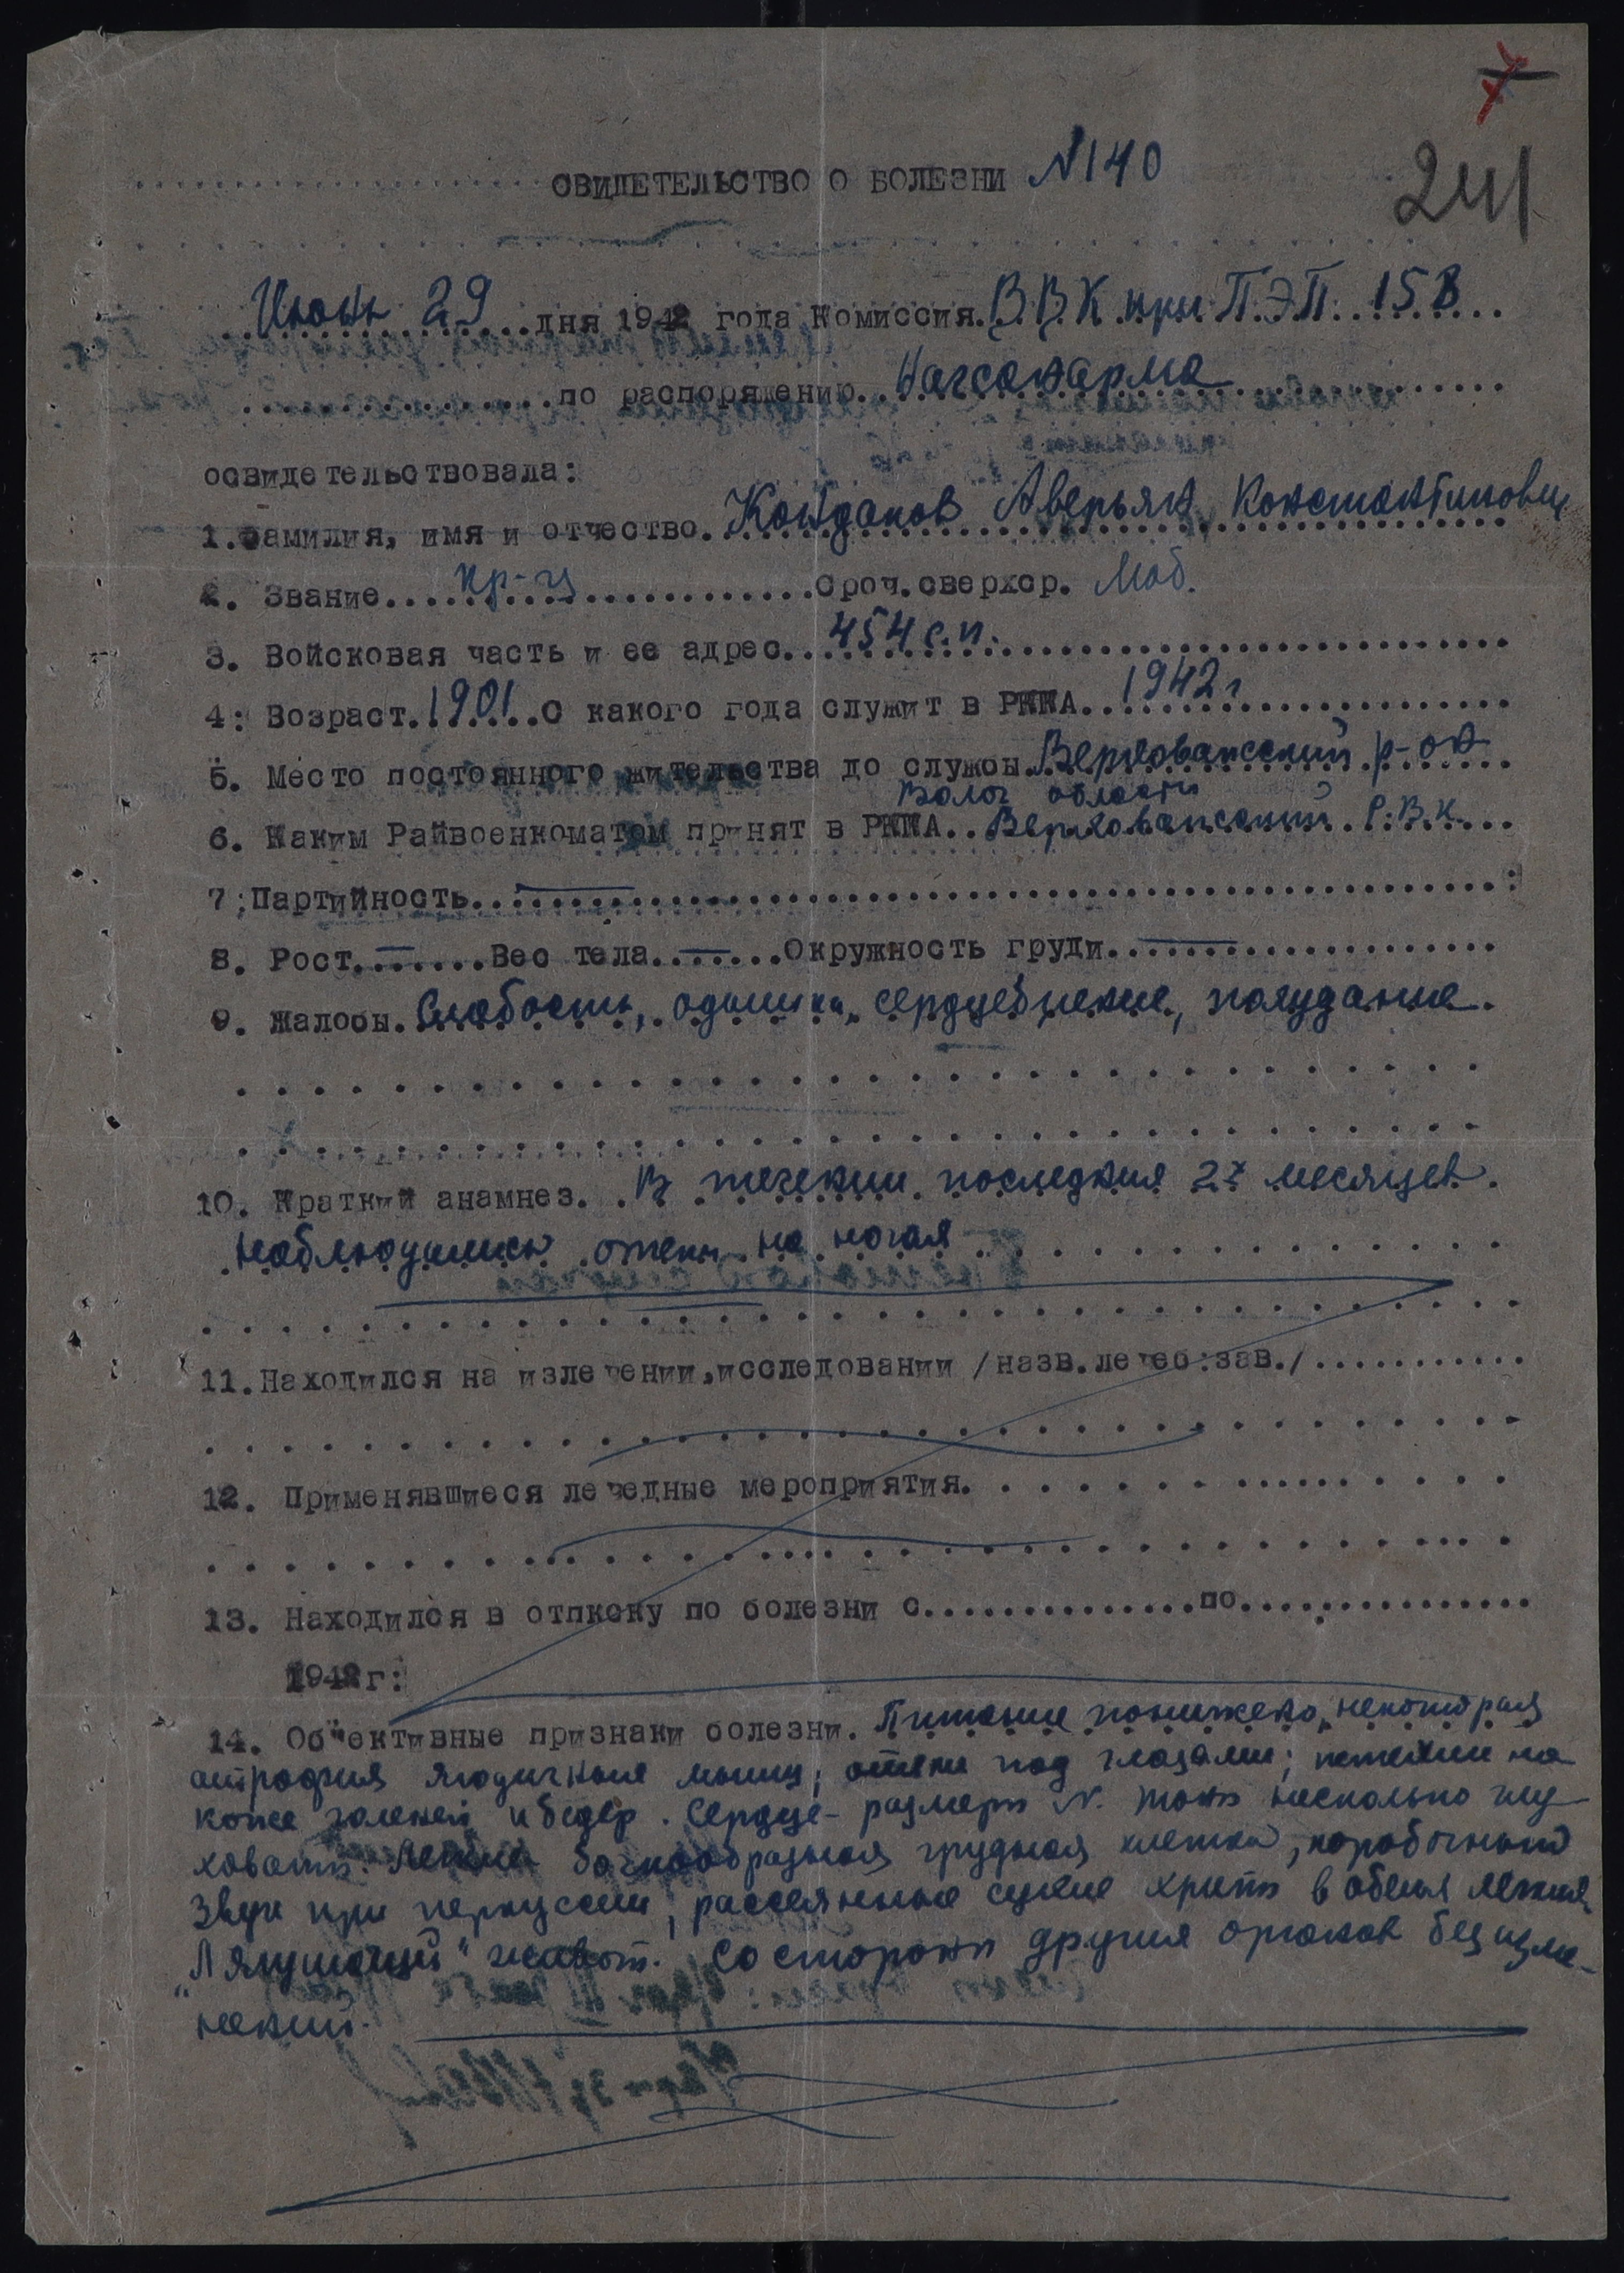 241
СВИДЕТЕЛЬСТВО О БОЛЕЗНИ N 140
Июня 29 дня 1942 года Комиссия В.В.К при П.Э.П. 158
по распоряжению Начсанарма
освидетельствовала:
1. Фамилия, имя и отчество. Кондаков Аверьян Константинович
2. Звание кр-ц Сроч.сверхср. Моб.
3. Войсковая часть и ее адрес 454 с.п.
4: Возраст. 1901 С какого года служит в РККА 1942 г
5. Место постоянного жительства до службы Верховажский р-он
Волог области
6. Каким Райвоенкоматом принят в РККА.. Верховажский Р.В.К.
7; Партийность — :
8. Рост — Вес тела — Окружность груди —
9. Жалобы. Слабость, одышка, сердцебиение, похудание.
10. Краткий анамнез. В течении последних 2х месяцев
наблюдались отеки на ногах
11. Находился на излечении,исследовании /назв.лечеб:зав./
12. Применявшиеся лечедные мероприятия.
13. Находился в отпкску по болезни с по
1942 г:
14. Об"ективные признаки болезни. Питание понижено, некоторая
атрофия ягодичных мышц; отеки под глазами; петехии на
коже голеней и бедер. Сердце - размеры N. тоны несколько глу
ховаты. Легкие бочкообразная грудная клетка, коробочный
звук при перкуссии, рассеянные сухие хрипы в обеих легких,
"Лягушачий" живот. Со стороны других органов без изме-
нений.